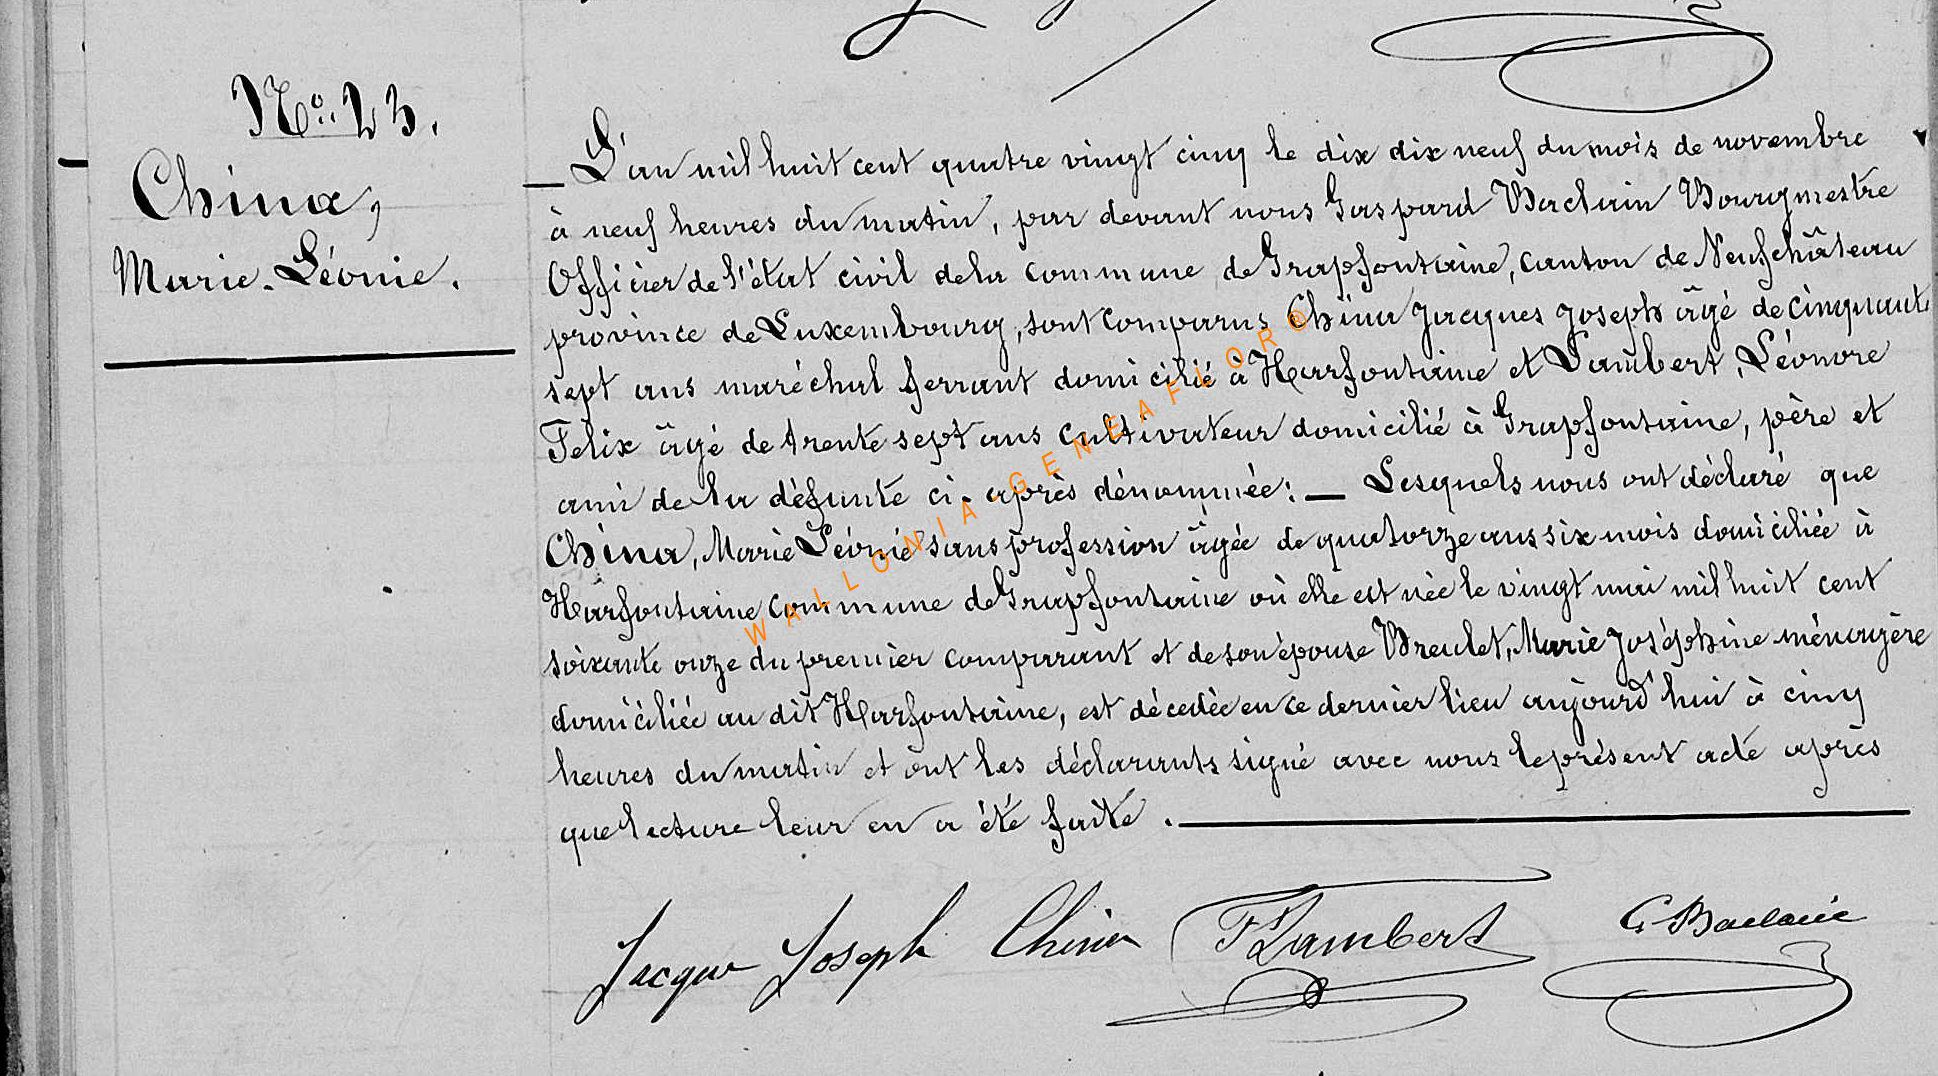 N° 23.
China,
Marie-Léonie.
L'an mil huit cent quatre vingt cinq le dix dix neuf du mois de novembre
à neuf heures du matin, par devant nous Gaspard Baclain Bourgmestre
Officier de l'état civil de la commune de Grapfontaine, canton de Neufchâteau
province de Luxembourg, sont comparus China Jacques Joseph âgé de cinquante
sept ans maréchal ferrant domicilié à Harfontaine et Lambert, Léonore
Felix âgé de trente sept ans cultivateur domicilié à Grapfontaine, père et
ami de la défunte ci-après dénommée: — Lesquels nous ont déclaré que
China, Marie Léonie sans profession âgée de quatorze ans six mois domiciliée à
Harfontaine commune de Grapfontaine où elle est née le vingt mai mil huit cent
soixante onze du premier comparant et de son épouse Breulet, Marie Joséphine ménagère
domiciliée au dit Harfontaine, est décedée en ce dernier lieu aujourd'hui à cinq
heures du matin et ont les déclarants signé avec nous le présent acte après
que lecture leur en a été faite.
Jacque Joseph China F Lambert G Baclain
WALLONIA-GENEAFLORE